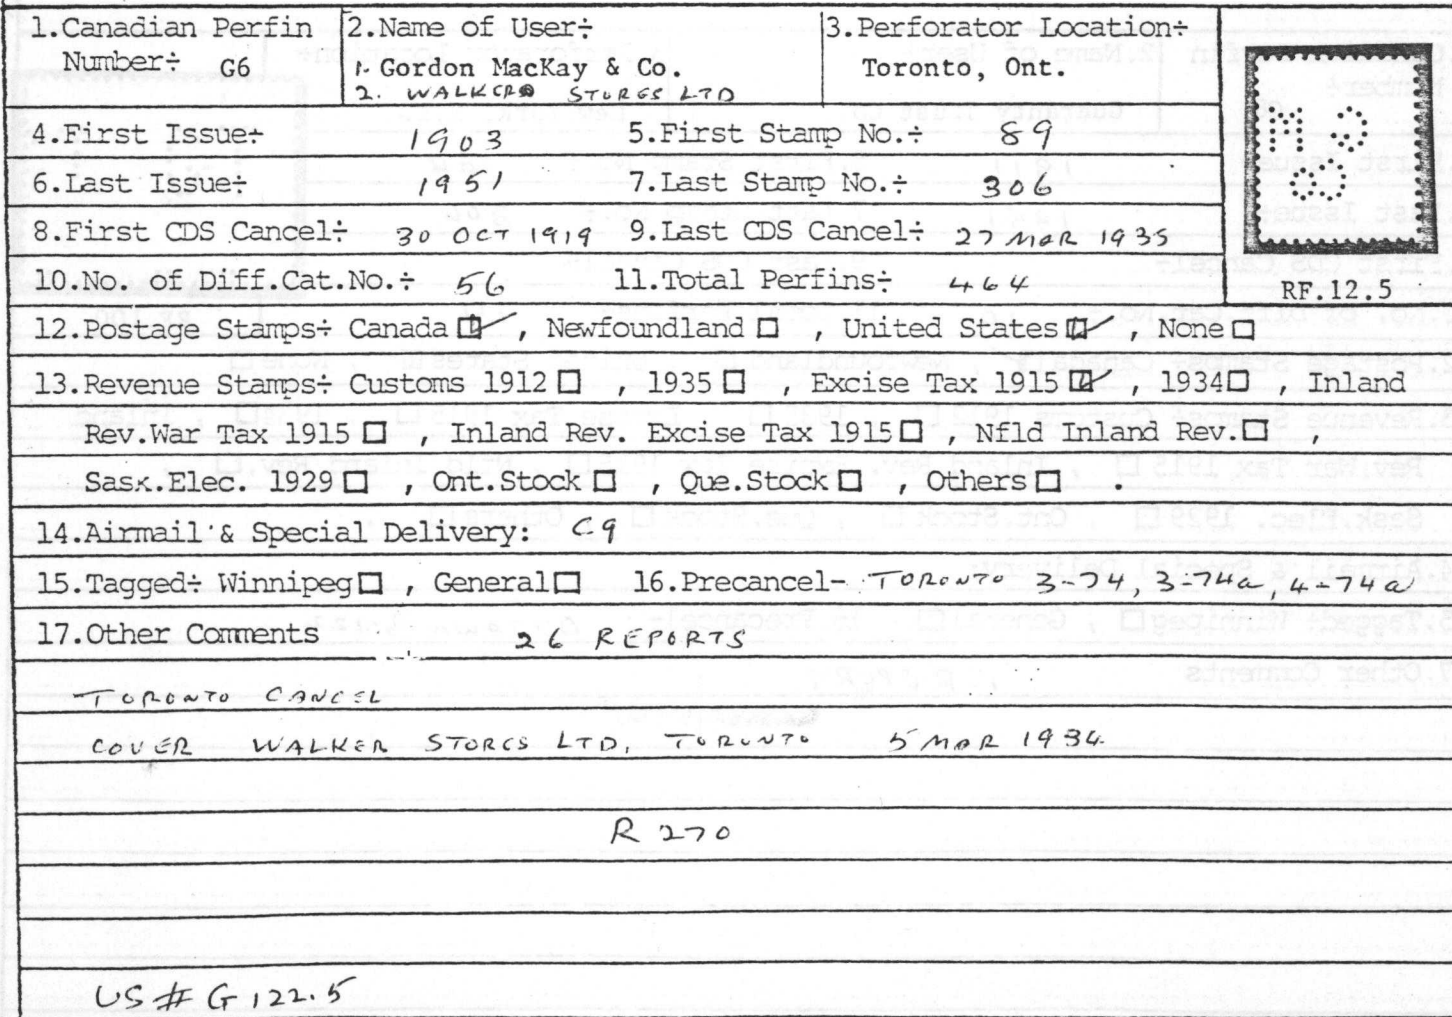 1.Canadian Perfin Number÷ G6
2.Name of User÷
1. Gordon MacKay & Co.
2. WALKERS STORES LTD
3.Perforator Location÷
Toronto, Ont.
4.First Issue÷ 1903 5.First Stamp No.÷ 89
6.Last Issue÷ 1951 7.Last Stamp No.÷ 306
8.First CDS Cancel÷ 30 OCT 1919 9.Last CDS Cancel÷ 27 MAR 1935
10.No. of Diff.Cat.No.÷ 56 11.Total Perfins÷ 464
RF.12.5
12.Postage Stamps÷ Canada ☑, Newfoundland ☐, United States ☑, None ☐
13.Revenue Stamps÷ Customs 1912 ☐, 1935 ☐, Excise Tax 1915 ☑, 1934 ☐, Inland
Rev.War Tax 1915 ☐, Inland Rev. Excise Tax 1915 ☐, Nfld Inland Rev. ☐,
Sask.Elec. 1929 ☐, Ont.Stock ☐, Que.Stock ☐, Others ☐.
14.Airmail & Special Delivery: C9
15.Tagged÷ Winnipeg ☐, General ☐ 16.Precancel- TORONTO 3-74, 3-74a, 4-74a
17.Other Comments 26 REPORTS
TORONTO CANCEL
COVER WALKER STORES LTD, TORONTO 5 MAR 1934
R 270
US # G 122.5